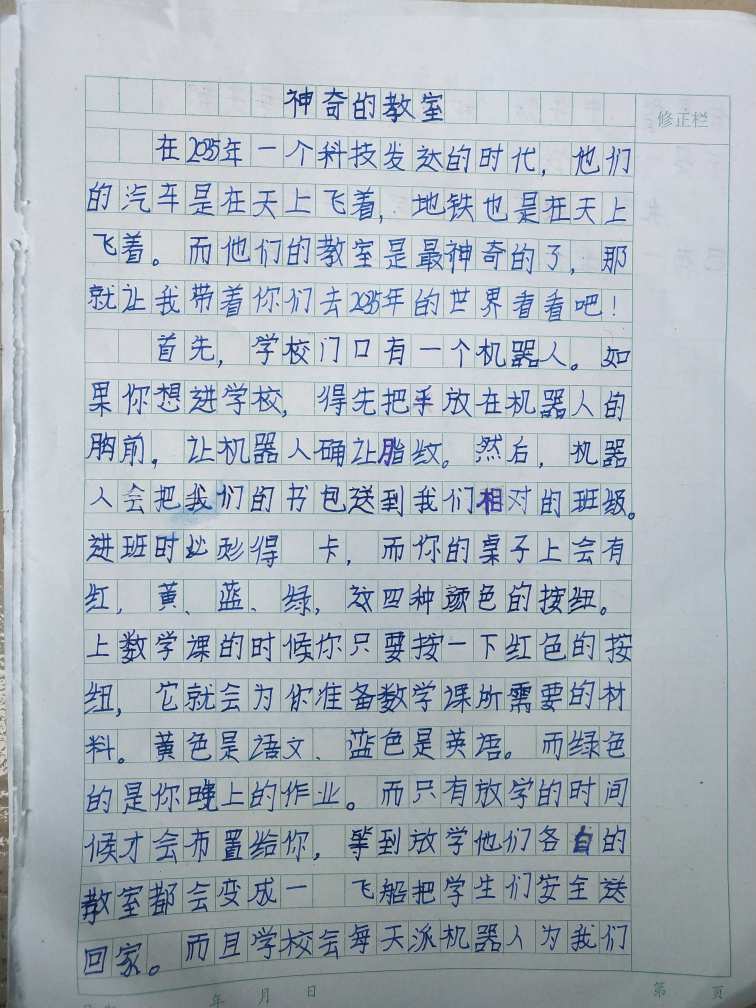 神奇的教室
修正栏
在2035年一个科技发达的时代，他们
的汽车是在天上飞着，地铁也是在天上
飞着。而他们的教室是最神奇的了，那
就让我带着你们去2035年的世界看看吧！
首先，学校门口有一个机器人。如
果你想进学校，得先把手放在机器人的
胸前，让机器人确让胎纹。然后，机器
人会把我们的书包送到我们相对的班级。
进班时必得 卡，而你的桌子上会有
红，黄、蓝、绿，这四种颜色的按纽。
上数学课的时候你只要按一下红色的按
纽，它就会为你准备数学课所需要的材
料。黄色是语文、蓝色是英语。而绿色
的是你晚上的作业。而只有放学的时间
候才会布置给你，等到放学他们各自的
教室都会变成一 飞船把学生们安全送
回家。而且学校会每天派机器人为我们
年 月 日
第 页